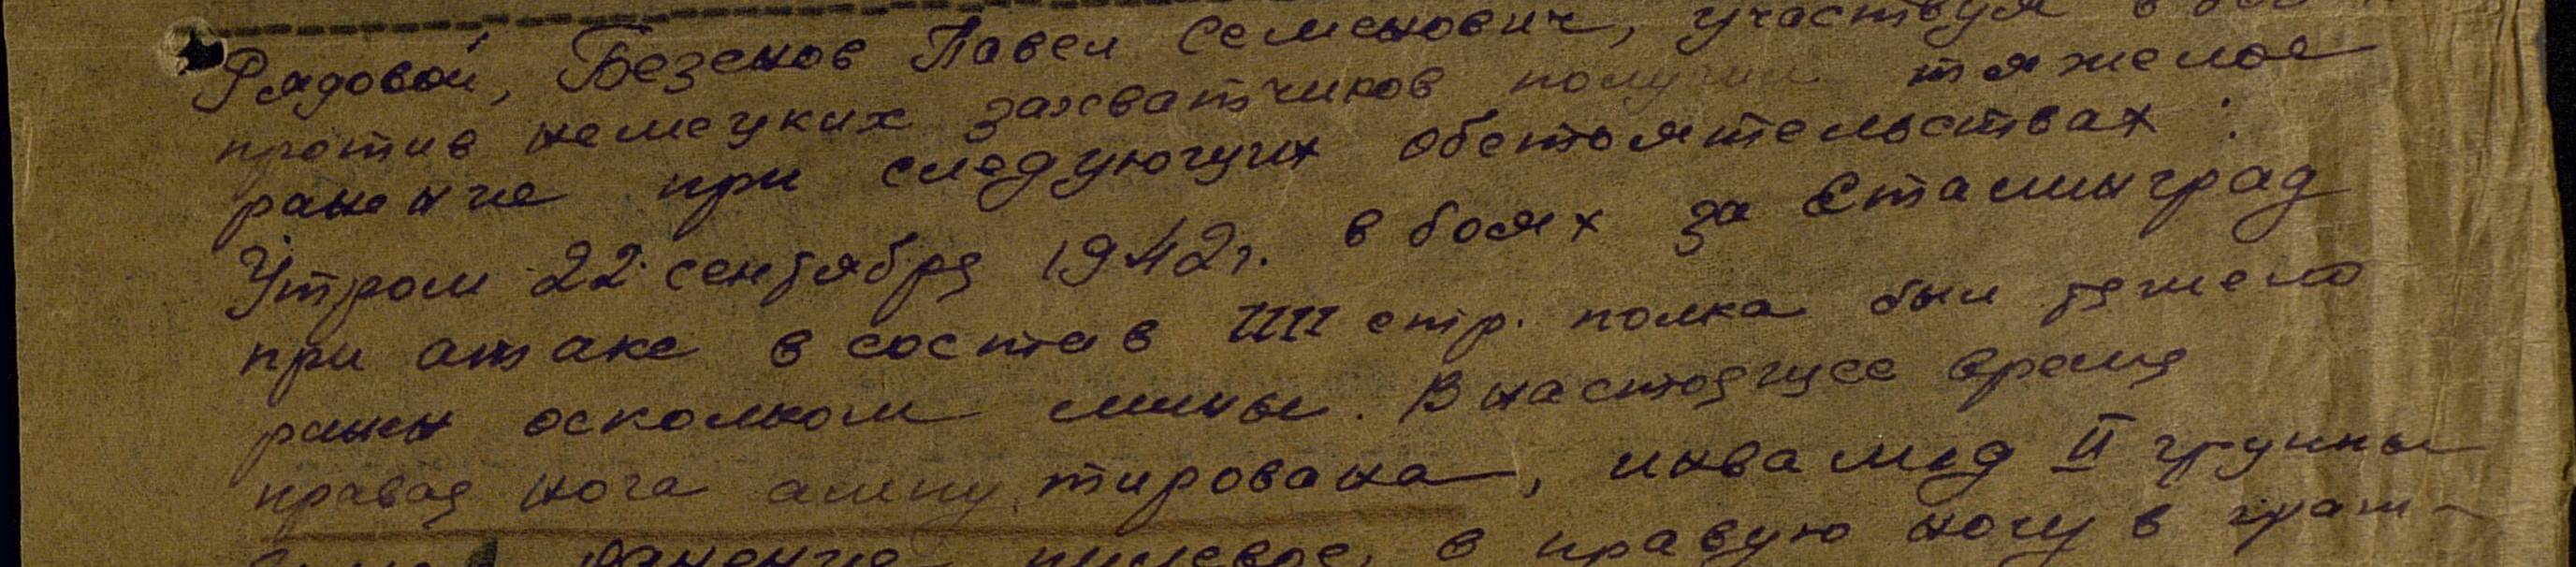 Рядовой, Безенов Павел Семенович, участвуя в
против немецких захватчиков получил тяжелое
ранение при следующих обстоятельствах:
Утром 22 сентября 1942 г. в боях за Сталинград
при атаке в состав стр. полка был тяжело
ранен осколком мины. В настоящее время
правая нога ампутирована, инвалид II группы
ранение - пулевое, в правую ногу в граж-